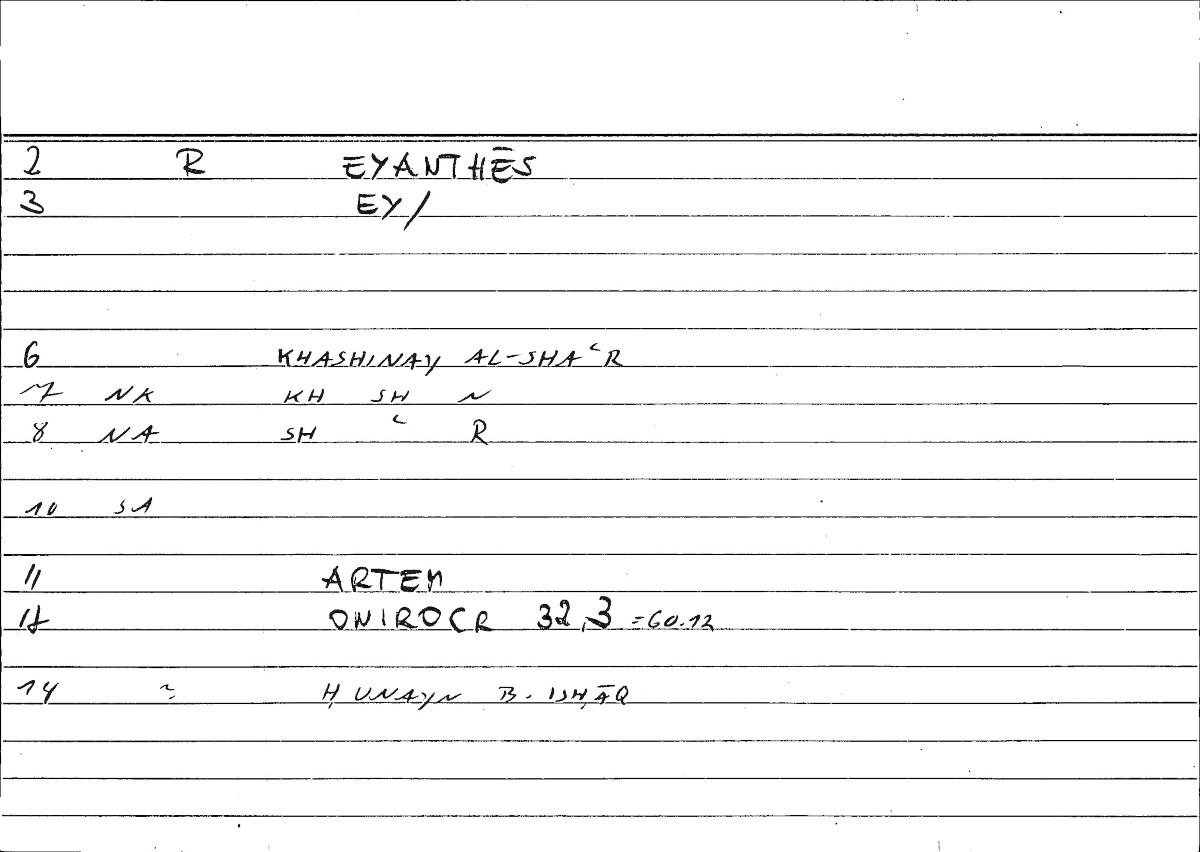 2 R EYANTHĒS
3 EY/
6 KHASHINAY AL-SHAʿR
7 NK KH SH N
8 NA SH ʿ R
10 SA
11 ARTEM
12 ONIROCR 32,3 =60.12
14 ~ ḤUNAYN B. ISḤĀQ